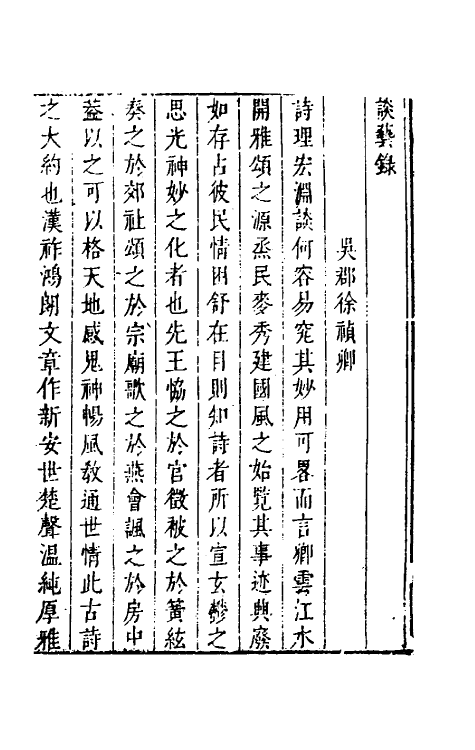 談藝錄
吳郡徐禎卿
詩理宏淵談何容易究其妙用可畧而言卿雲江水
開雅頌之源烝民麥秀建國風之始覽其事迹興廢
如存占彼民情困舒在目則知詩者所以宣玄鬱之
思光神妙之化者也先王恊之於官徵被之於黃絃
奏之於郊社頌之於宗廟歌之於燕會諷之於房中
葢以之可以格天地感鬼神暢風敎通世情此古詩
之大約也漢祚鴻朗文章作新安世楚聲溫純厚雅